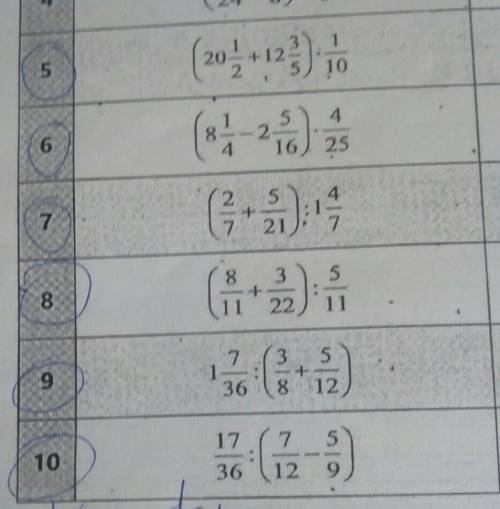 5 (20 1/2 + 12 3/5) · 1/10
6 (8 1/4 - 2 5/16) · 4/25
7 (2/7 + 5/21) : 1 4/7
8 (8/11 + 3/22) : 5/11
9 1 7/36 : (3/8 + 5/12)
10 17/36 : (7/12 - 5/9)